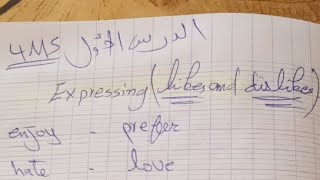 4MS الدرس الأول
Expressing (likes and dislikes)
enjoy - prefer
hate - love